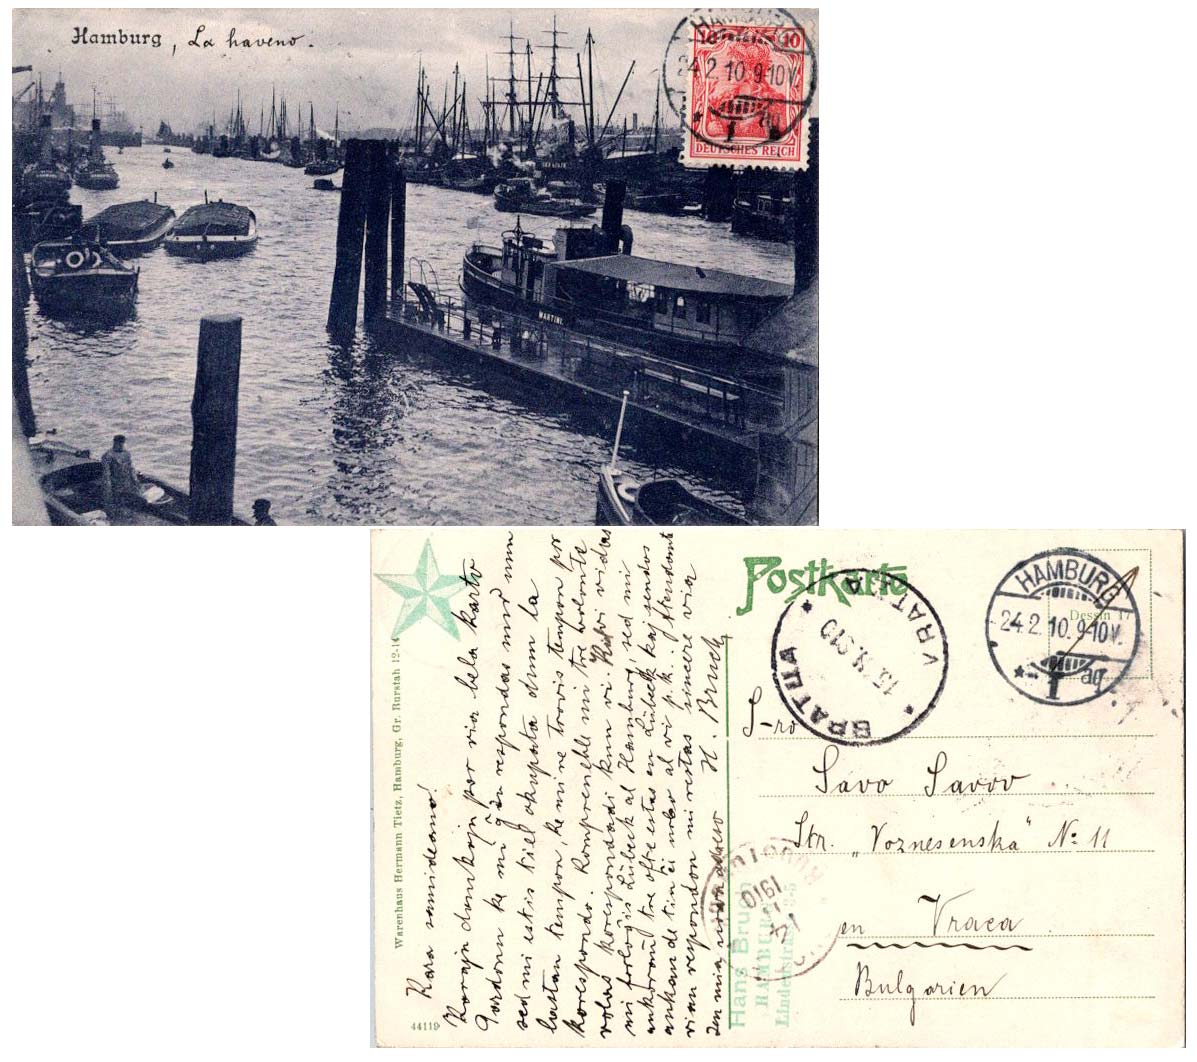 Hamburg, La haveno.
10 10
DEUTSCHES REICH
HAMBURG
24.2.10.9-10V.
MARTINE
Postkarte
HAMBURG
24.2.10.9-10V.
* 1 *
Dessin 17
ВРАТЦА
VRATZA
Warenhaus Hermann Tietz, Hamburg, Gr. Burstah 12-14
44119
Kara samideano!
Korajn dankojn por via bela karto
Pardonu ke mi ĝin respondas nur nun
sed mi estis tiel okupata dum la
lastan tempon, ke mi ne trovis tempon por
korespondo. Kompreneble mi tre volonte
volas korespondadi kun vi. Ĵus vi vidas
mi forloĝis Lübeck al Hamburg, sed mi
ankoraŭ tre ofte estas en Lübeck kaj sendos
ankaŭ de tie ĉi mbr al vi p.k. Atendante
vian respondon mi restas sincere via
H. Bruch
Jen mia nova adreso
Hans Bruch
HAMBURG
Lindenstrasse
1910
S-ro
Savo Savov
Str. „Voznesenska" No 11
en Vraca
Bulgarien